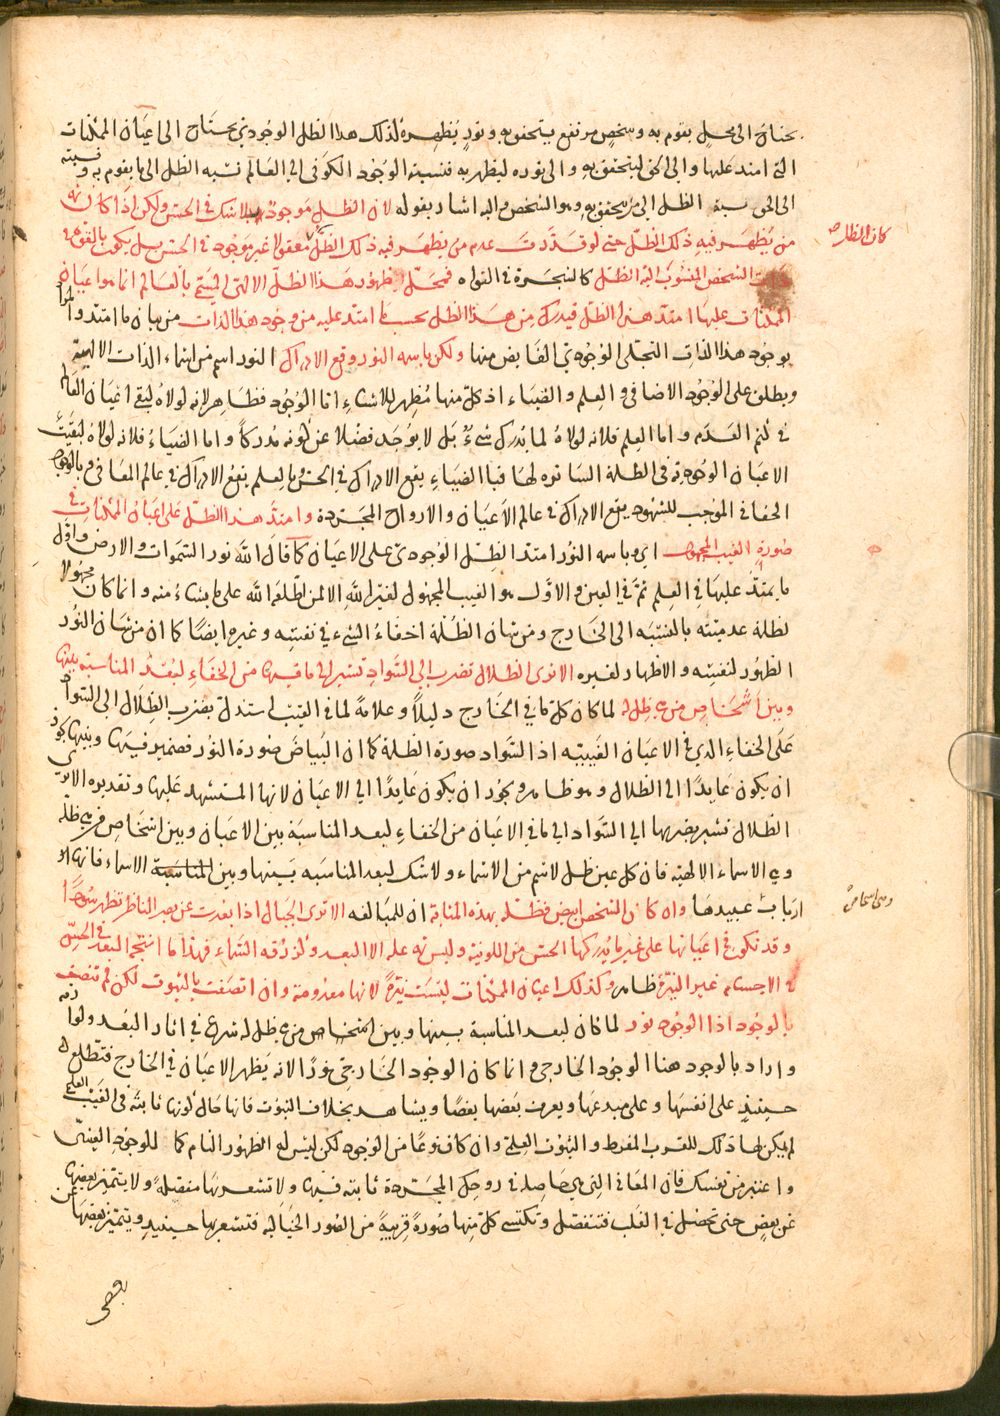 يحتاج الى محل يقوم به وشخص مرتفع يتحقق به ونور يظهره لذلك هذا الظل الوجودي يحتاج الى اعيان الممكنات
التي امتد عليها والى الحق ليتحقق به والى نوره ليظهر به فنسبة الوجود الكوني الى العالم نسبة الظل الى ما يقوم به ونسبته
الى الحق نسبة الظل الى من يتحقق به وهو الشخص واليه اشار بقوله لان الظل موجود بلا شك في الحس ولكن اذا كان ثمه
من يظهر فيه ذلك الظل حتى لو قدرت عدم من يظهر فيه ذلك الظل كان الظل معقولا غير موجود في الحس بل يكون بالقوة في
ذات الشخص المنسوب اليه الظل كالشجرة في النواه فمحل ظهور هذا الظل الالهي المسمى بالعالم انما هو اعيان
الممكنات عليها امتد هذا الظل فيدرك من هذا الظل بحسب ما امتد عليه من وجود هذا الذات من بيان ما امتد والمراد
بوجود هذا الذات التجلى الوجودي الفايض منها ولكن باسمه النور وقع الادراك النور اسم من اسماء الذات الالهية
ويطلق على الوجود الاضافي والعلم والضياء اذ كل منها مظهر للاشياء اما الوجود فظاهر لانه لولاه لبقي اعيان العالم
في كتم العدم واما العلم فلانه لولاه لما يدرك شيء بل لا يوجد فضلا عن كونه مدركا واما الضياء فلانه لولاه لبقيت
الاعيان الوجودية في الظلمة الساترة لها فبالضياء يقع الادراك في الحس وبالعلم يقع الادراك في عالم المعاني وبالوجود
الحقاني الموجب للشهود يقع الادراك في عالم الاعيان والارواح المجردة وامتد هذا الظل على اعيان الممكنات في
صورة الغيب المجهول اي وباسمه النور امتد الظل الوجودي على الاعيان كما قال الله نور السموات والارض واول
ما يمتد عليها في العلم ثم في العين والاول هو الغيب المجهول لغير الله الا لمن اطلعه الله على ما يشاء منه وانما كان مجهولا
لظلمة عدميته بالنسبة الى الخارج ومن شان الظلمة اخفاء الشيء في نفسه وغيره ايضا كما ان من شان النور
الظهور لنفسه والاظهار لغيره الا ترى الظلال تضرب الى السواد تشير الى ما فيها من الخفاء لبعد المناسبة بينها
وبين اشخاص من هي ظل له لما كان كل ما في الخارج دليلا وعلامة لما في الغيب استدل بضرب الظلال الى السواد
على الخفاء الذي في الاعيان الغيبية اذ السواد صورة الظلمة كما ان البياض صورة النور فضمير فيها وبينها يجوز
ان يكون عايدا الى الظلال وهو ظاهر ويجوز ان يكون عايدا الى الاعيان لانها المستشهد عليها وتقديره الا ترى
الظلال تشير بضربها الى السواد الى ما في الاعيان من الخفاء لبعد المناسبة بين الاعيان وبين اشخاص من هي ظله
وهي الاسماء الالهية فان كل عين ظل لاسم من الاسماء ولا شك لبعد المناسبة بينها وبين المناسبة الاسماء فانها
ارباب عبيدها وان كان الشخص ابيض فظله بهذه المثابة ان للمبالغه الا ترى الجبال اذا بعدت عن بصر الناظر تظهر سوداء
وقد تكون في اعيانها على غير ما يدركها الحس من اللونية وليس ثمه علة الا البعد وكزرقة السماء فهذا ما انتجه البعد في الحس
في الاجسام غير النيرة ظاهر وكذلك اعيان الممكنات ليست نيرة لانها معدومة وان اتصفت بالثبوت لكن لم تتصف
بالوجود اذ الوجود نور لما كان لبعد المناسبة بينها وبين اشخاص من هي ظل له شرع في اثار البعد ولوازمه
واراد بالوجود هنا الوجود الخارجي وانما كان الوجود الخارجي نورا لانه يظهر الاعيان في الخارج فتطلع
حينيذ على انفسها وعلى مبدعها ويعرف بعضها بعضا ويشاهد بخلاف الثبوت فانها حال كونها ثابتة في الغيب العلمي
لم يكن لها ذلك للقرب المفرط والثبوت العلمي وان كان نوعا من الوجود لكن ليس له الظهور التام كما للوجود العيني
واعتبر من نفسك فان المعاني التي هي حاصلة في روحك المجردة ثابتة فيها ولا تشعر بها مفصلة ولا يتميز بعضها
عن بعض حتى تحصل في القلب فتتفصل وتكتسي كل منها صورة قريبة من الصور الخيالية فتشعر بها حينيذ ويتميز بعضها عن
بعض
كان الظل